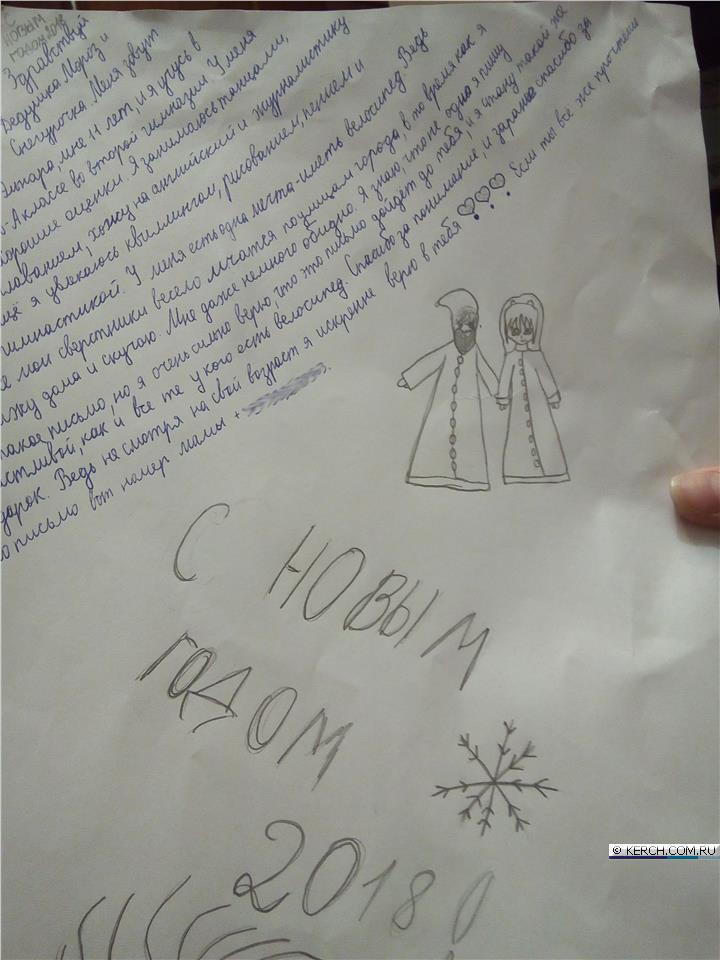 С
НОВЫМ
ГОДОМ 2018
Здравствуй
Дедушка Мороз и
Снегурочка. Меня зовут
мне 11 лет, и я учусь в
А классе во второй гимназии. У меня
хорошие оценки. Я занимаюсь танцами,
плаванием, хожу на английский и журналистику
ещё я увлекаюсь квиллингом, рисованием, пением и
гимнастикой. У меня есть одна мечта-иметь велосипед. Ведь
мои сверстники весело мчатся по улицам города в то время как я
сижу дома и скучаю. Мне даже немного обидно. Я знаю, что не одна я пишу
такое письмо, но я очень сильно верю, что это письмо дойдет до тебя, и я стану такой же
счастливой, как и все те у кого есть велосипед. Спасибо за понимание, и заранее спасибо за
подарок. Ведь не смотря на свой возраст я искренне верю в тебя !!! Если ты всё же прочтешь
письмо вот номер мамы +
С НОВЫМ
ГОДОМ
2018!
© KERCH.COM.RU